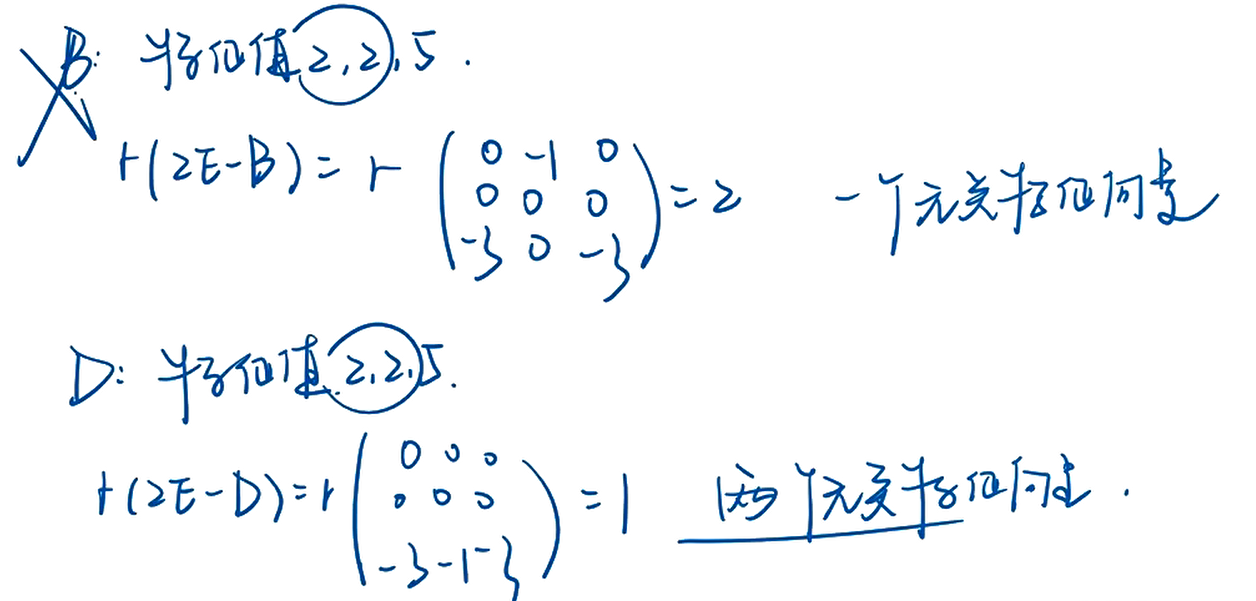 B: 特征值 2, 2, 5.
r(2E-B) = r ( 0 -1 0 ; 0 0 0 ; -3 0 -3 ) = 2 一个无关特征向量
D: 特征值 2, 2, 5.
r(2E-D) = r ( 0 0 0 ; 0 0 0 ; -3 -1 -3 ) = 1 两个无关特征向量.